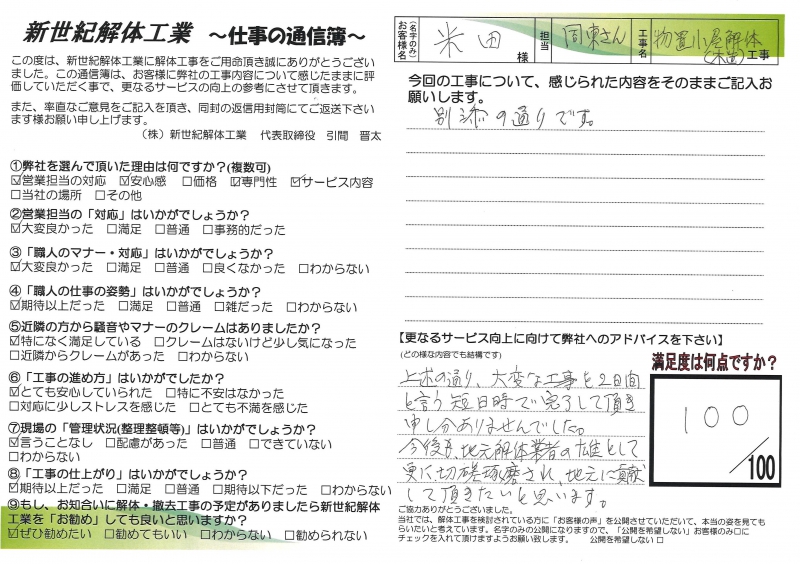 新世紀解体工業 ～仕事の通信簿～
この度は、新世紀解体工業に解体工事をご用命頂き誠にありがとうござい
ました。この通信簿は、お客様に弊社の工事内容について感じたままに評
価していただく事で、更なるサービスの向上の参考にさせて頂きます。
また、率直なご意見をご記入を頂き、同封の返信用封筒にてご返送下さい
ます様お願い申し上げます。
(株)新世紀解体工業 代表取締役 引間 晋太
①弊社を選んで頂いた理由は何ですか?(複数可)
☑営業担当の対応 ☑安心感 □価格 ☑専門性 ☑サービス内容
□当社の場所 □その他
②営業担当の「対応」はいかがでしょうか?
☑大変良かった □満足 □普通 □事務的だった
③「職人のマナー・対応」はいかがでしょうか?
☑大変良かった □満足 □普通 □良くなかった □わからない
④「職人の仕事の姿勢」がいかがでしょうか?
☑期待以上だった □満足 □普通 □雑だった □わからない
⑤近隣の方から騒音やマナーのクレームはありましたか?
☑特になく満足している □クレームはないけど少し気になった
□近隣からクレームがあった □わからない
⑥「工事の進め方」はいかがでしたか?
☑とても安心していられた □特に不安はなかった
□対応に少しストレスを感じた □とても不満を感じた
⑦現場の「管理状況(整理整頓等)」はいかがでしょうか?
☑言うことなし □配慮があった □普通 □できていない
□わからない
⑧「工事の仕上がり」はいかがでしょうか?
☑期待以上だった □満足 □普通 □期待以下だった □わからない
⑨もし、お知合いに解体・撤去工事の予定がありましたら新世紀解体
工業を「お勧め」しても良いと思いますか?
☑ぜひ勧めたい □勧めてもいい □わからない □勧められない
お客様名
(名字のみ)
米田 様
担当
周東さん
工事名
物置小屋解体
(木造) 工事
今回の工事について、感じられた内容をそのままご記入お
願いします。
別添の通りです。
【更なるサービス向上に向けて弊社へのアドバイスを下さい】
(どの様な内容でも結構です)
上述の通り、大変な工事を2日間
と言う短日時で完了して頂き
申し分ありませんでした。
今後も、地元解体業者の雄として
更に切磋琢磨され、地元に貢献
して頂きたいと思います。
満足度は何点ですか?
100
/100
ご協力ありがとうございました。
当社では、解体工事を検討されている方に「お客様の声」を公開させていただいて、本当の姿を見ても
らいたいと考えています。名字のみの公開になりますので、「公開を希望しない」お客様のみ□に
チェックを入れて頂けますようお願い致します。 公開を希望しない □